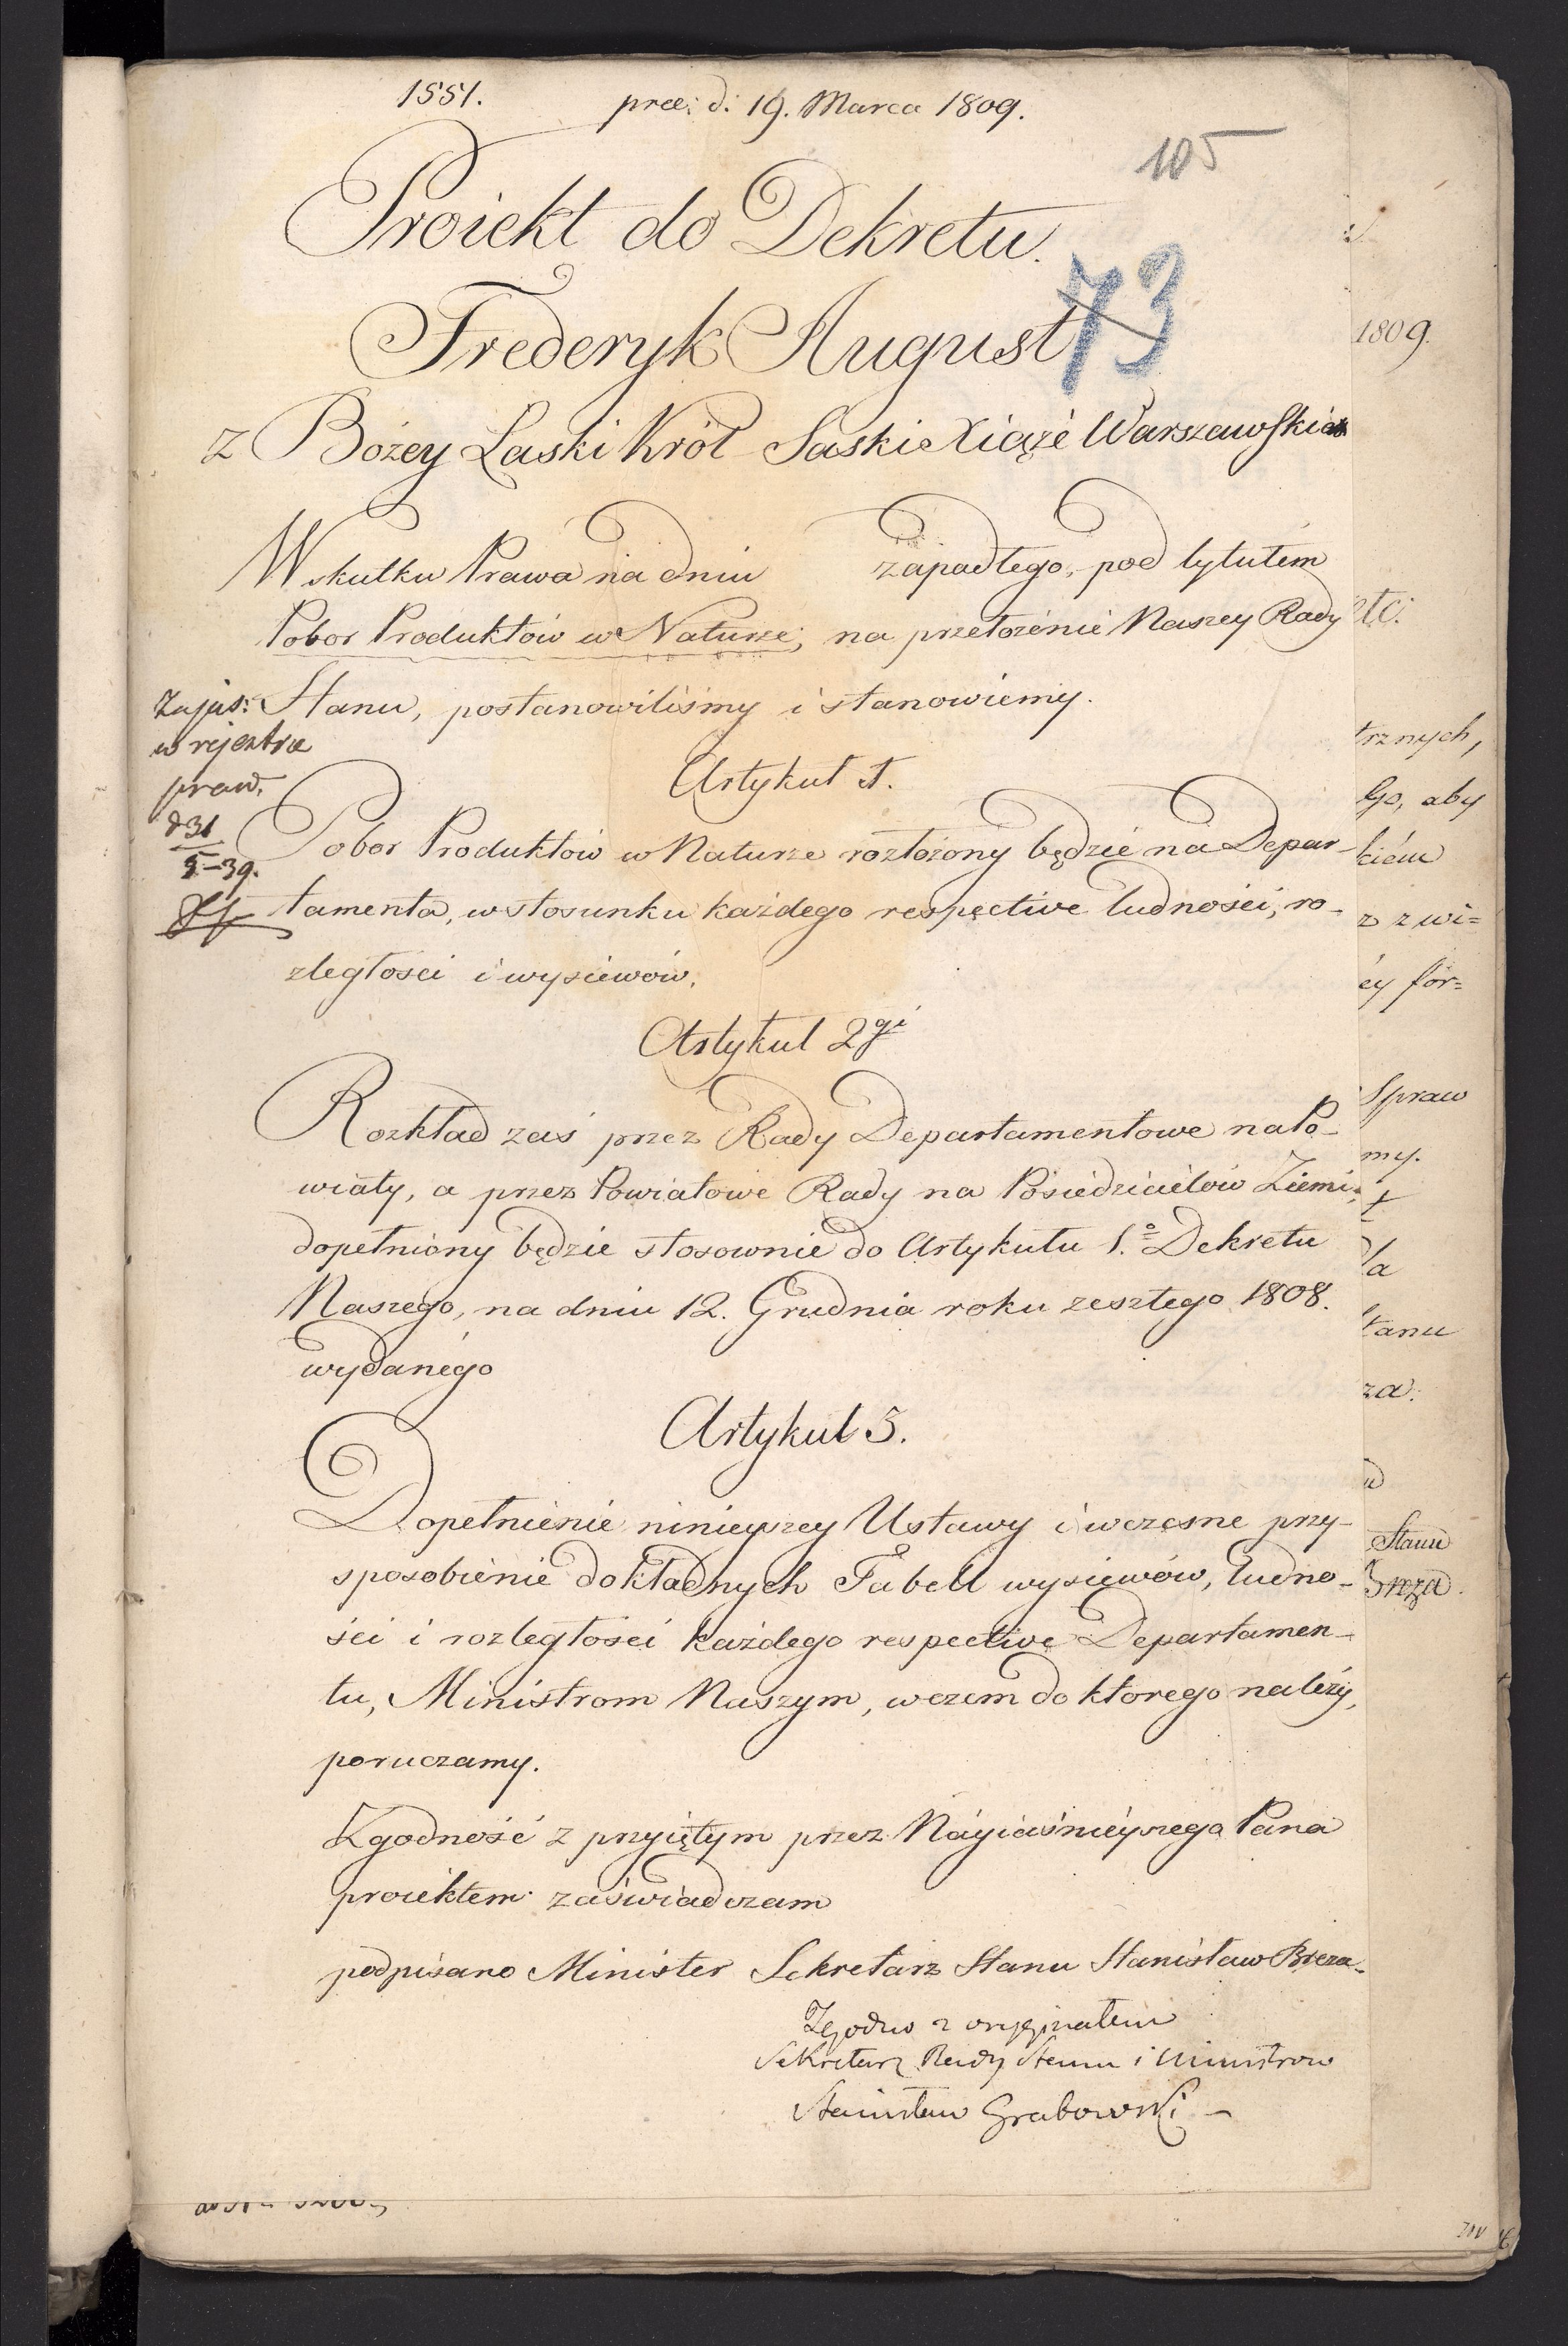 1551. prae: d: 19. Marca 1809.
105
Proiekt do Dekretu.
73
Frederyk August
z Bożey Łaski Król Saski Xiążę Warszawski
Wskutku Prawa na dniu zapadłego, pod tytułem
Pobor Produktów w Naturze, na przełożenie Naszey Rady
Stanu, postanowiliśmy i stanowiemy.
w rejestrze
praw.
d 31
5 - 39.
Artykuł 1.
Pobor Produktów w Naturze rozłożony będzie na Depar-
tamenta, w stosunku każdego respective ludności, ro-
zległosci i wysiewów.
Artykuł 2gi
Rozkład zaś przez Rady Departamentowe na Po-
wiaty, a przez Powiatowe Rady na Posiedzicielów Ziemi,
dopełniony będzie stosownie do Artykułu 1.o Dekretu
Naszego, na dniu 12. Grudnia roku zeszłego 1808.
wydanego
Artykuł 3.
Dopełnienie ninieyszey Ustawy i wczesne przy-
sposobienie dokładnych Tabell wysiewów, ludno-
ści i rozległości każdego respective Departamen-
tu, Ministrom Naszym, w czem do ktorego należy,
poruczamy.
Zgodność z przyiętym przez Nayiaśnieyszego Pana
proiektem zaświadczam
podpisano Minister Sekretarz Stanu Stanisław Breza.
Zgodno z oryginałem
Sekretarz Rady Stanu i Ministrow
Stanisław Grabowski
1809.
etc.
trznych,
go, aby
kiém
z z wi=
éy for=
Spraw
my.
la
tanu
za.
Stanu
Breza.